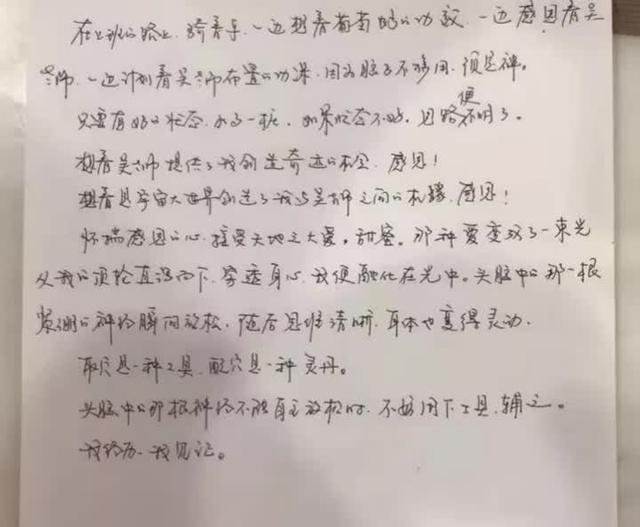 在上班的路上，骑着车，一边想着葡萄的功效，一边感恩着吴
老师，一边计划着吴老师布置的功课，因为脑子不够用，须是禅。
只要有好的状态，如果状态不好，思路便不明了。
想着吴老师提供了我创造奇迹的机会，感恩！
想着是宇宙大世界创造了我与吴老师之间的机缘，感恩！
怀揣感恩的心，接受天地之大爱，甜蜜。那种爱变成了一束光
从我的顶轮直泻而下，穿透身心，我便融化在光中。头脑中的那一根
紧绷的神经瞬间放松，随后思维清晰，身体也变得灵动。
取穴是一种工具，配穴是一种灵丹。
头脑中的那根神经不能自主放松时，不妨用下工具，辅之。
我经历，我见证。